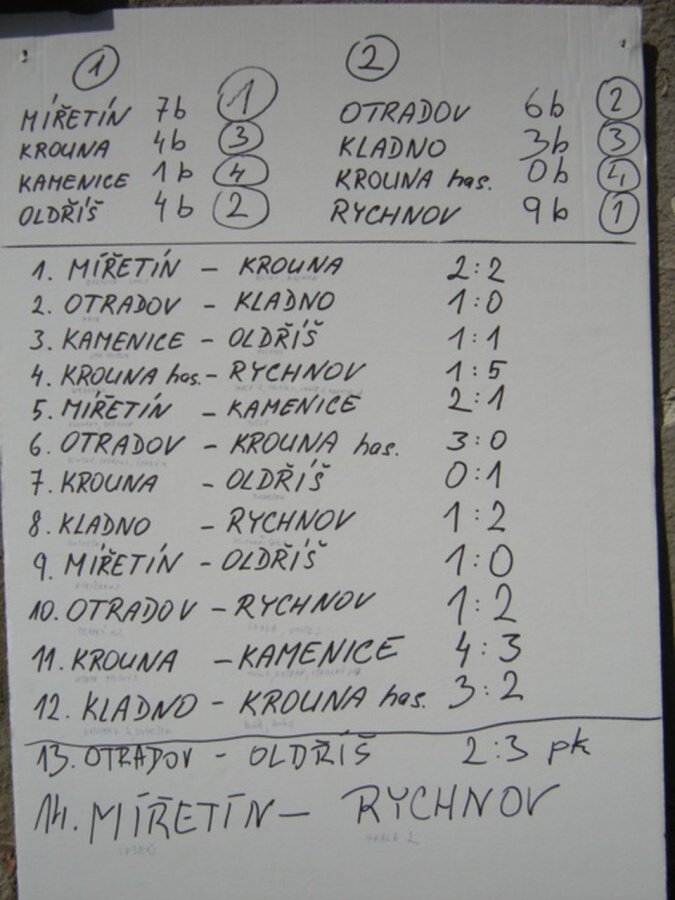 1 2
MÍŘETÍN 7b 1 OTRADOV 6b 2
KROUNA 4b 3 KLADNO 3b 3
KAMENICE 1b 4 KROUNA has. 0b 4
OLDŘÍŠ 4b 2 RYCHNOV 9b 1
1. MÍŘETÍN - KROUNA 2:2
2. OTRADOV - KLADNO 1:0
3. KAMENICE - OLDŘÍŠ 1:1
4. KROUNA has. - RYCHNOV 1:5
5. MÍŘETÍN - KAMENICE 2:1
6. OTRADOV - KROUNA has. 3:0
7. KROUNA - OLDŘÍŠ 0:1
8. KLADNO - RYCHNOV 1:2
9. MÍŘETÍN - OLDŘÍŠ 1:0
10. OTRADOV - RYCHNOV 1:2
11. KROUNA - KAMENICE 4:3
12. KLADNO - KROUNA has. 3:2
13. OTRADOV - OLDŘÍŠ 2:3 pk
14. MÍŘETÍN - RYCHNOV